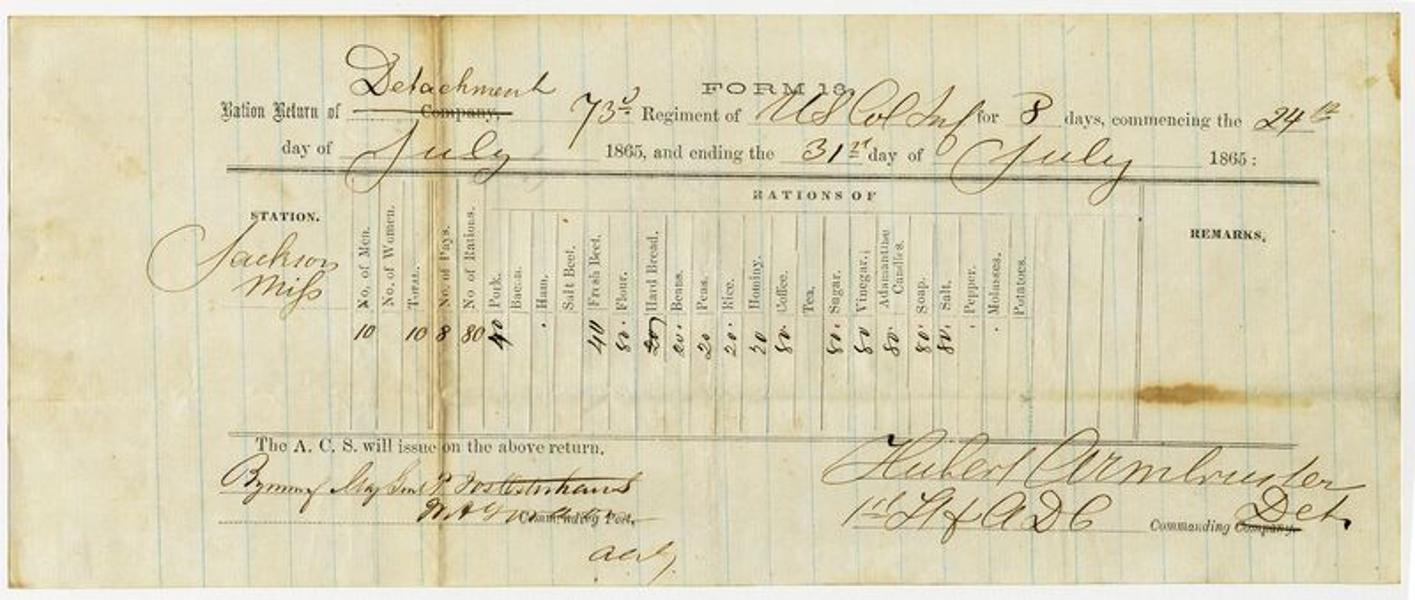 FORM 13.
Ration Return of Detachment Company, 73d Regiment of US Col Inf for 8 days, commencing the 24th
day of July 1865, and ending the 31st day of July 1865:
RATIONS OF
STATION. No. of Men. No. of Women. TOTAL. No. of Days. No. of Rations. Pork. Bacon. Ham. Salt Beef. Fresh Beef. Flour. Hard Bread. Beans. Peas. Rice. Hominy. Coffee. Tea. Sugar. Vinegar. Adamantine Candles. Soap. Salt. Pepper. Molasses. Potatoes. REMARKS.
Jackson
Miss
10 10 8 80 40 40 80. 20. 20 20. 20 80. 80. 80 80. 80. 80.
The A. C. S. will issue on the above return.
By Maj Genl P. Jos Osterhaus
Commanding Post.
Hubert Armbruster
1st Lt & ADC Commanding Company. Det.